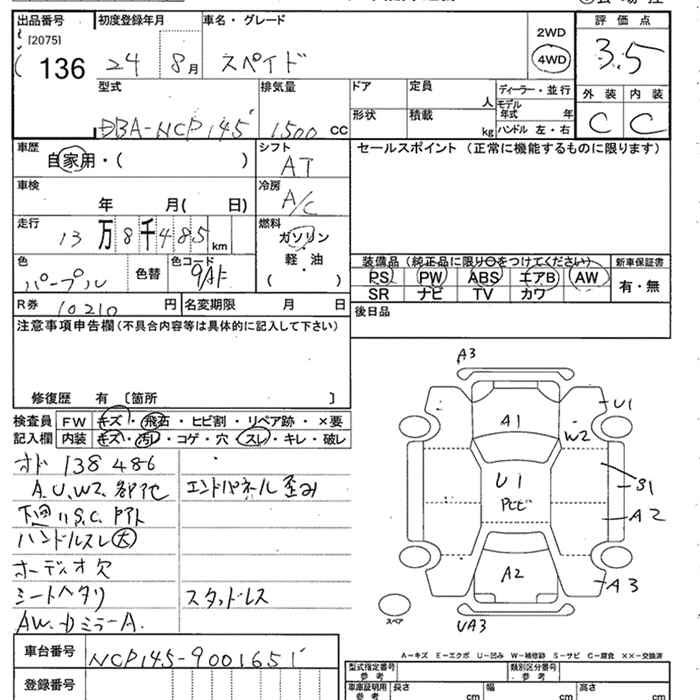 出品番号 初度登録年月 車名・グレード 評価点
[2075]
136 24 8月 スペイド 2WD 4WD 3.5
型式 排気量 ドア 定員 人 ディーラー・並行 外装 内装
モデル年式 年
DBA-NCP145 1500 CC 形状 積載 kg ハンドル 左・右 C C
車歴 シフト セールスポイント (正常に機能するものに限ります)
自家用・( ) AT
車検 冷房
年 月( 日) A/C
走行 燃料
13万8千485km ガソリン
色 色替 色コード 軽・油 装備品 (純正品に限り○をつけてください) 新車保証書
パープル 9AF ( ) PS PW ABS エアB AW 有・無
SR ナビ TV カワ
R券 10210 円 名変期限 月 日 後日品
注意事項申告欄(不具合内容等は具体的に記入して下さい)
修復歴 有 [箇所 ]
検査員 FW キズ・飛石・ヒビ割・リペア跡・×要
記入欄 内装 キズ・汚レ・コゲ・穴・スレ・キレ・破レ
オド 138486
A.U.W2. 多 エンドパネル歪み
下回リS.C.
ハンドルスレ大
オーディオ欠
シートヘタリ スタッドレス
AW.ドミラーA.
A3
A1 U1
W2
U1 S1
A2
A2 A3
スペア UA3
A-キズ E-エクボ U-凹み W-補修跡 S-サビ C-腐食 XX-交換済
車台番号 NCP145-9001651
型式指定番号 参考 類別区分番号 参考
登録番号 車庫証明用 参考 長さ cm 幅 cm 高さ cm